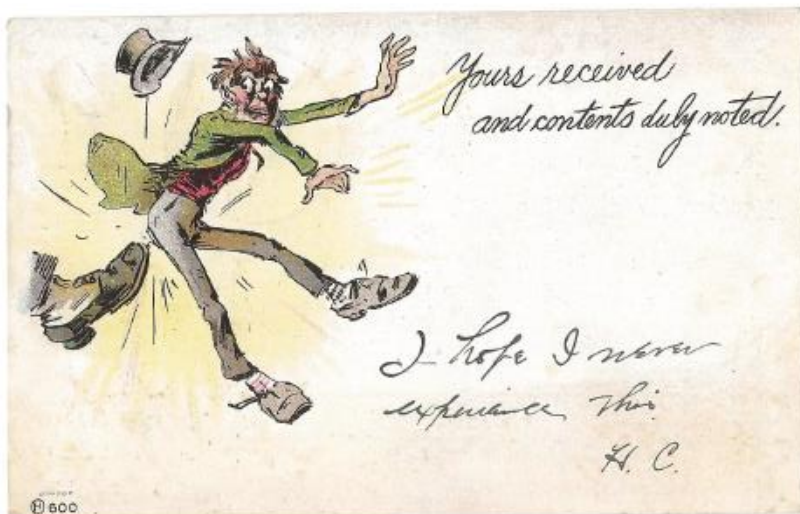 Yours received
and contents duly noted.
I hope I never
experience this
H. C.
H 600